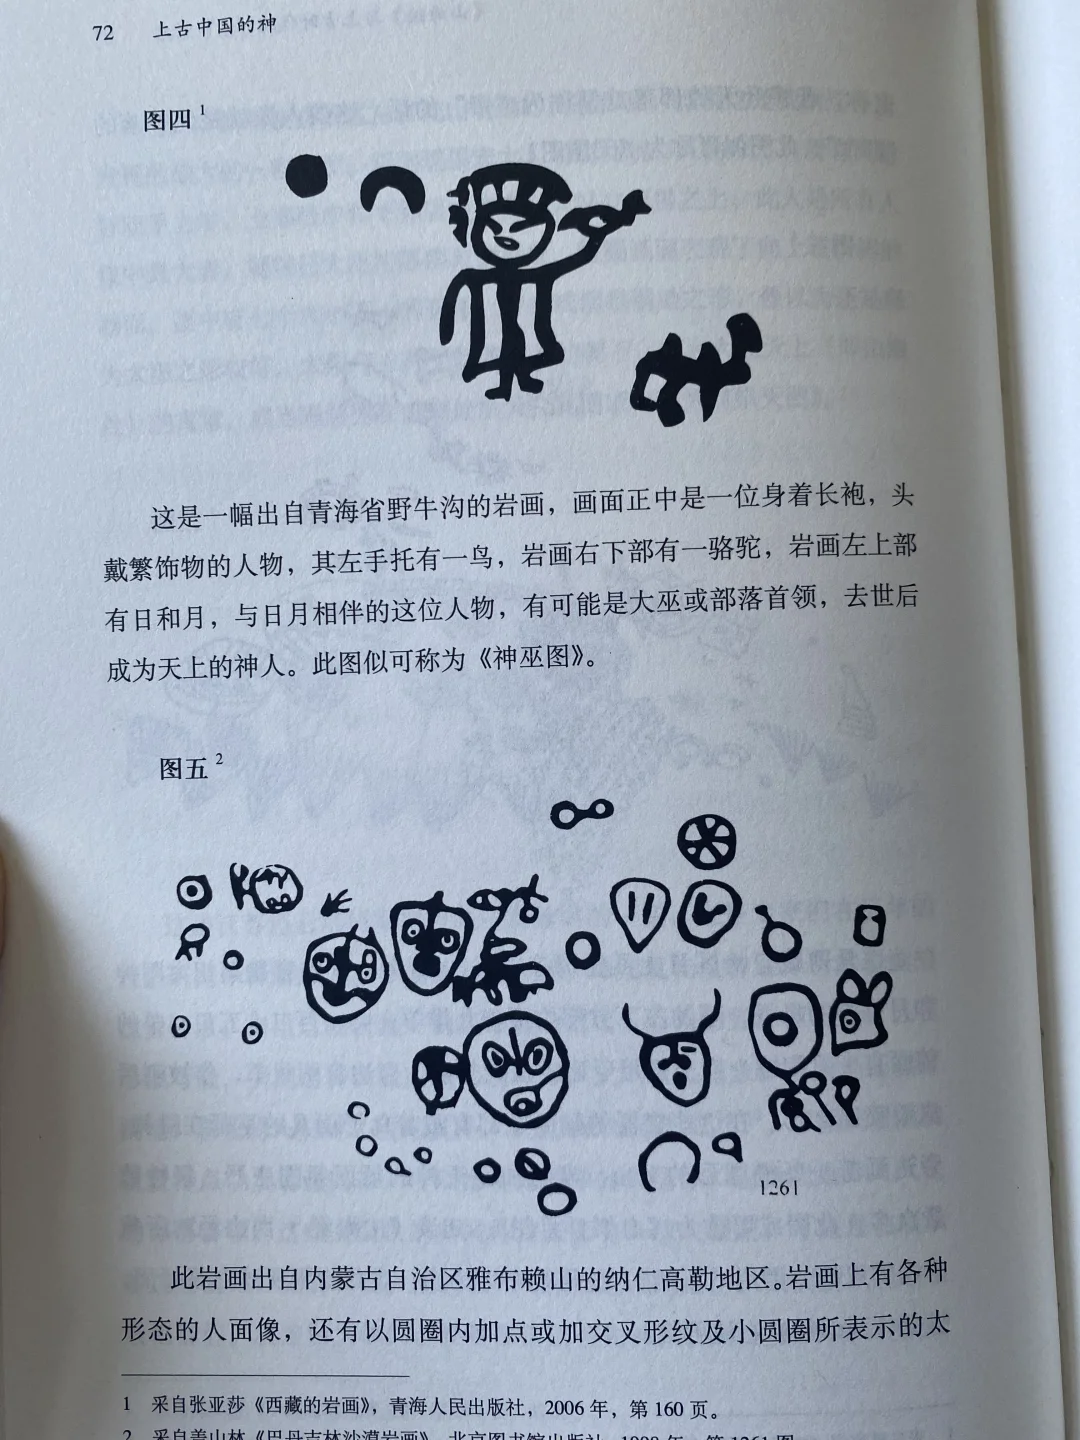 72 上古中国的神
图四 1
这是一幅出自青海省野牛沟的岩画，画面正中是一位身着长袍，头
戴繁饰物的人物，其左手托有一鸟，岩画右下部有一骆驼，岩画左上部
有日和月，与日月相伴的这位人物，有可能是大巫或部落首领，去世后
成为天上的神人。此图似可称为《神巫图》。
图五 2
1261
此岩画出自内蒙古自治区雅布赖山的纳仁高勒地区。岩画上有各种
形态的人面像，还有以圆圈内加点或加交叉形纹及小圆圈所表示的太
1 采自张亚莎《西藏的岩画》，青海人民出版社，2006 年，第 160 页。
2 采自盖山林《巴丹吉林沙漠岩画》，北京图书馆出版社，1998 年，第 1261 图